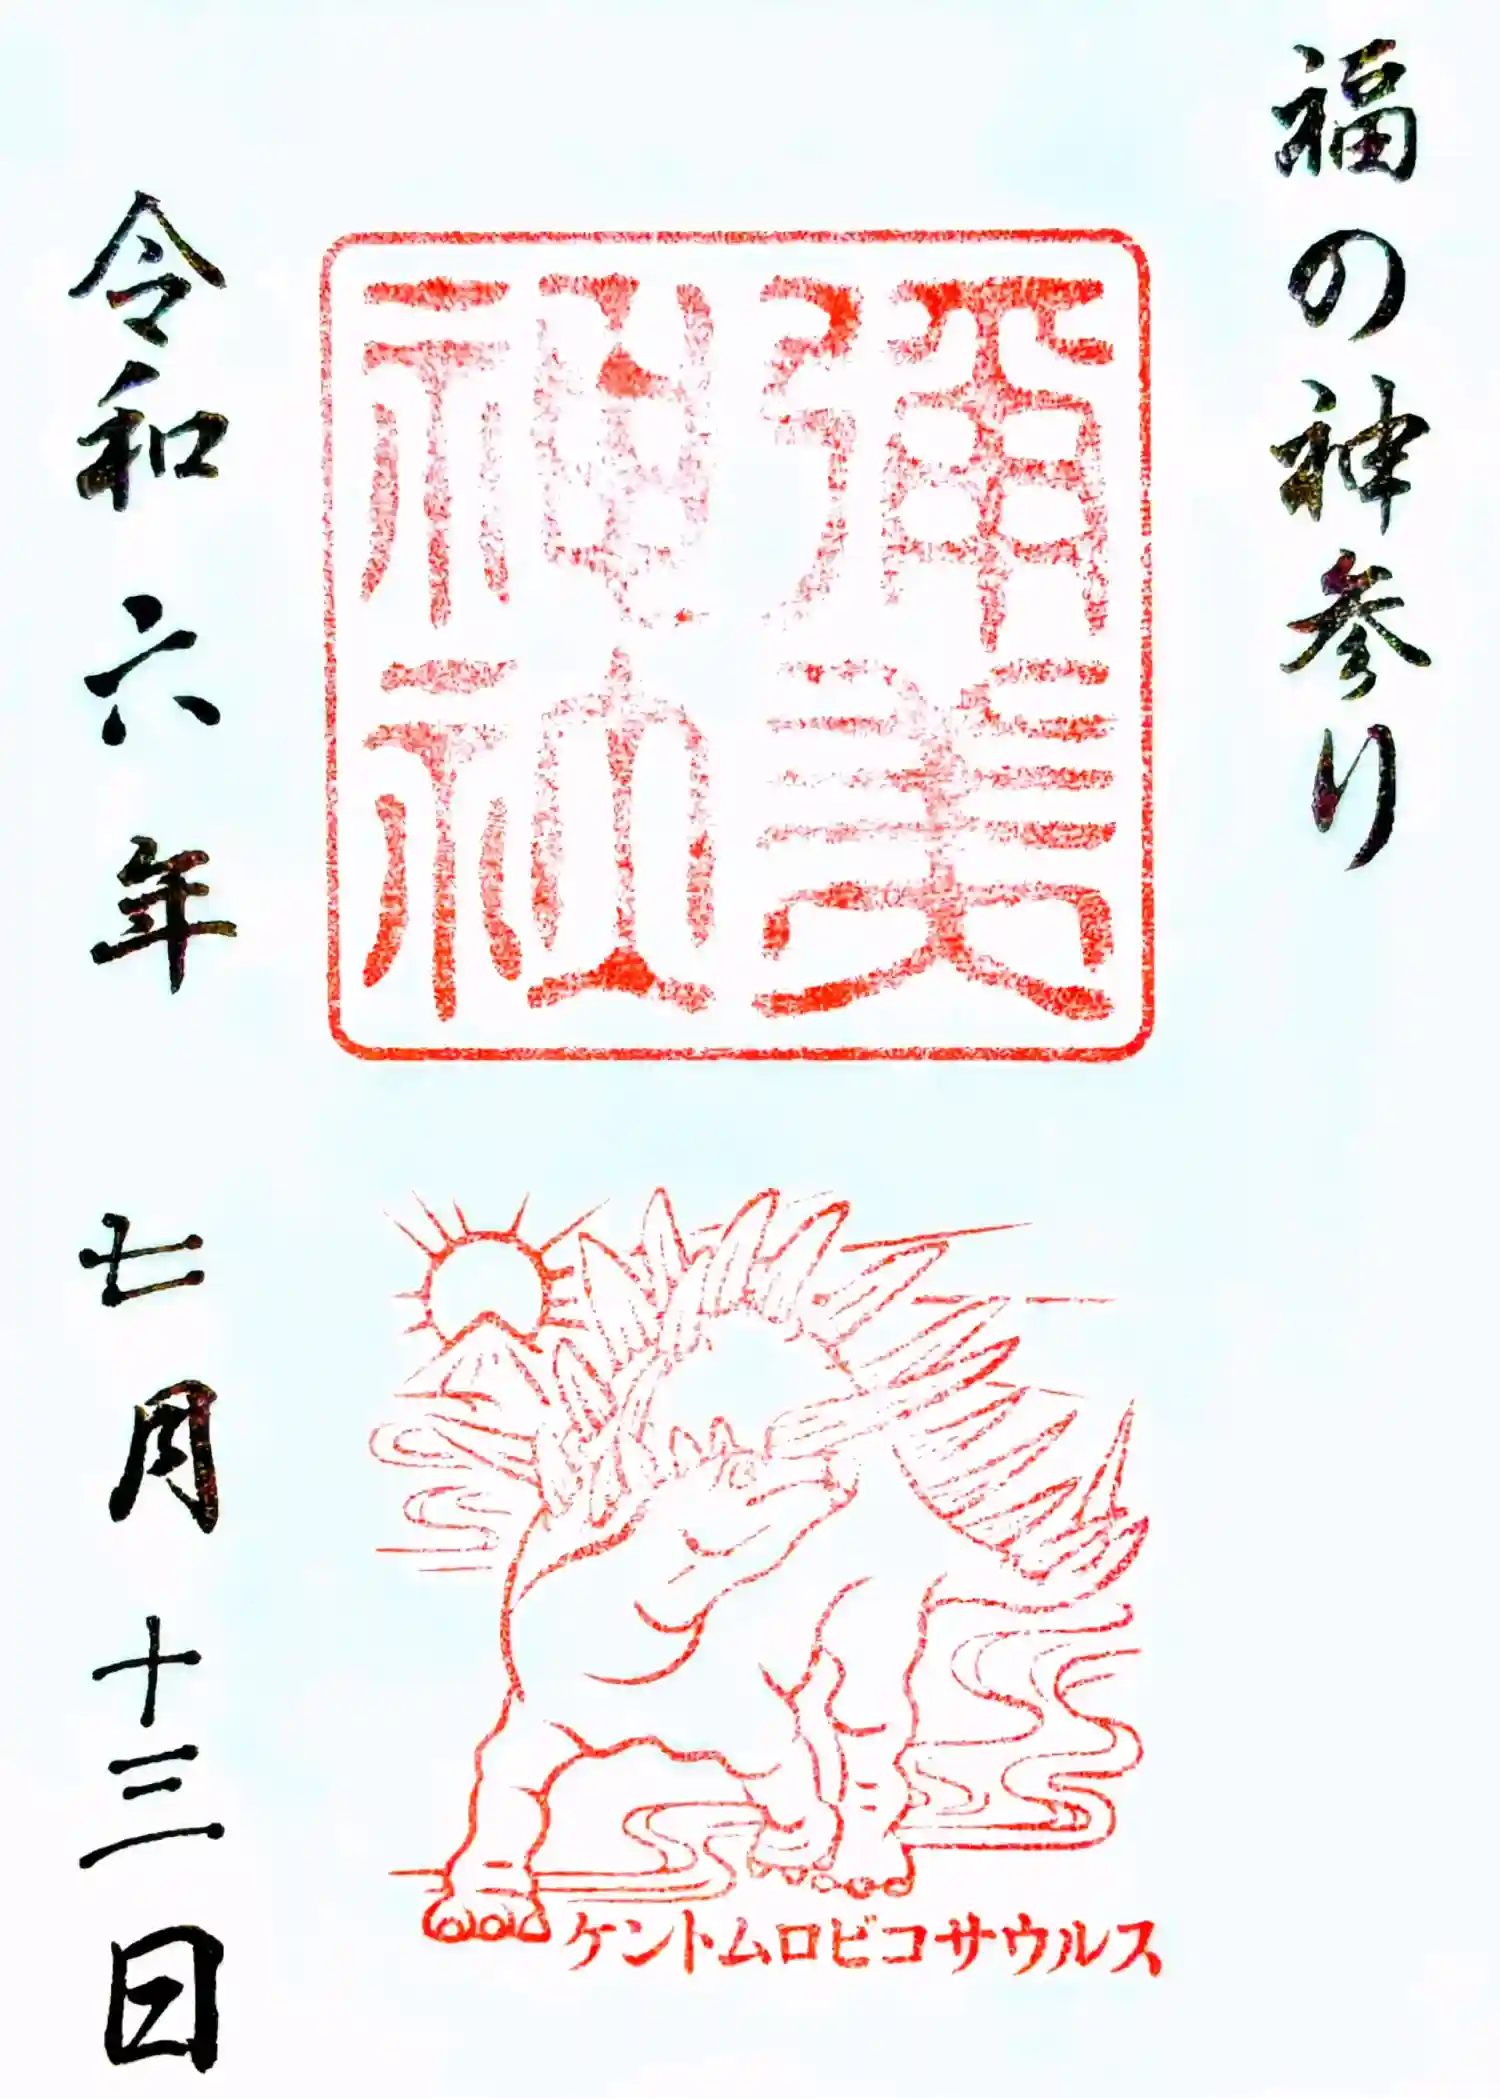 福の神参り
彌美
神社
ケントムロビコサウルス
令和六年七月十三日